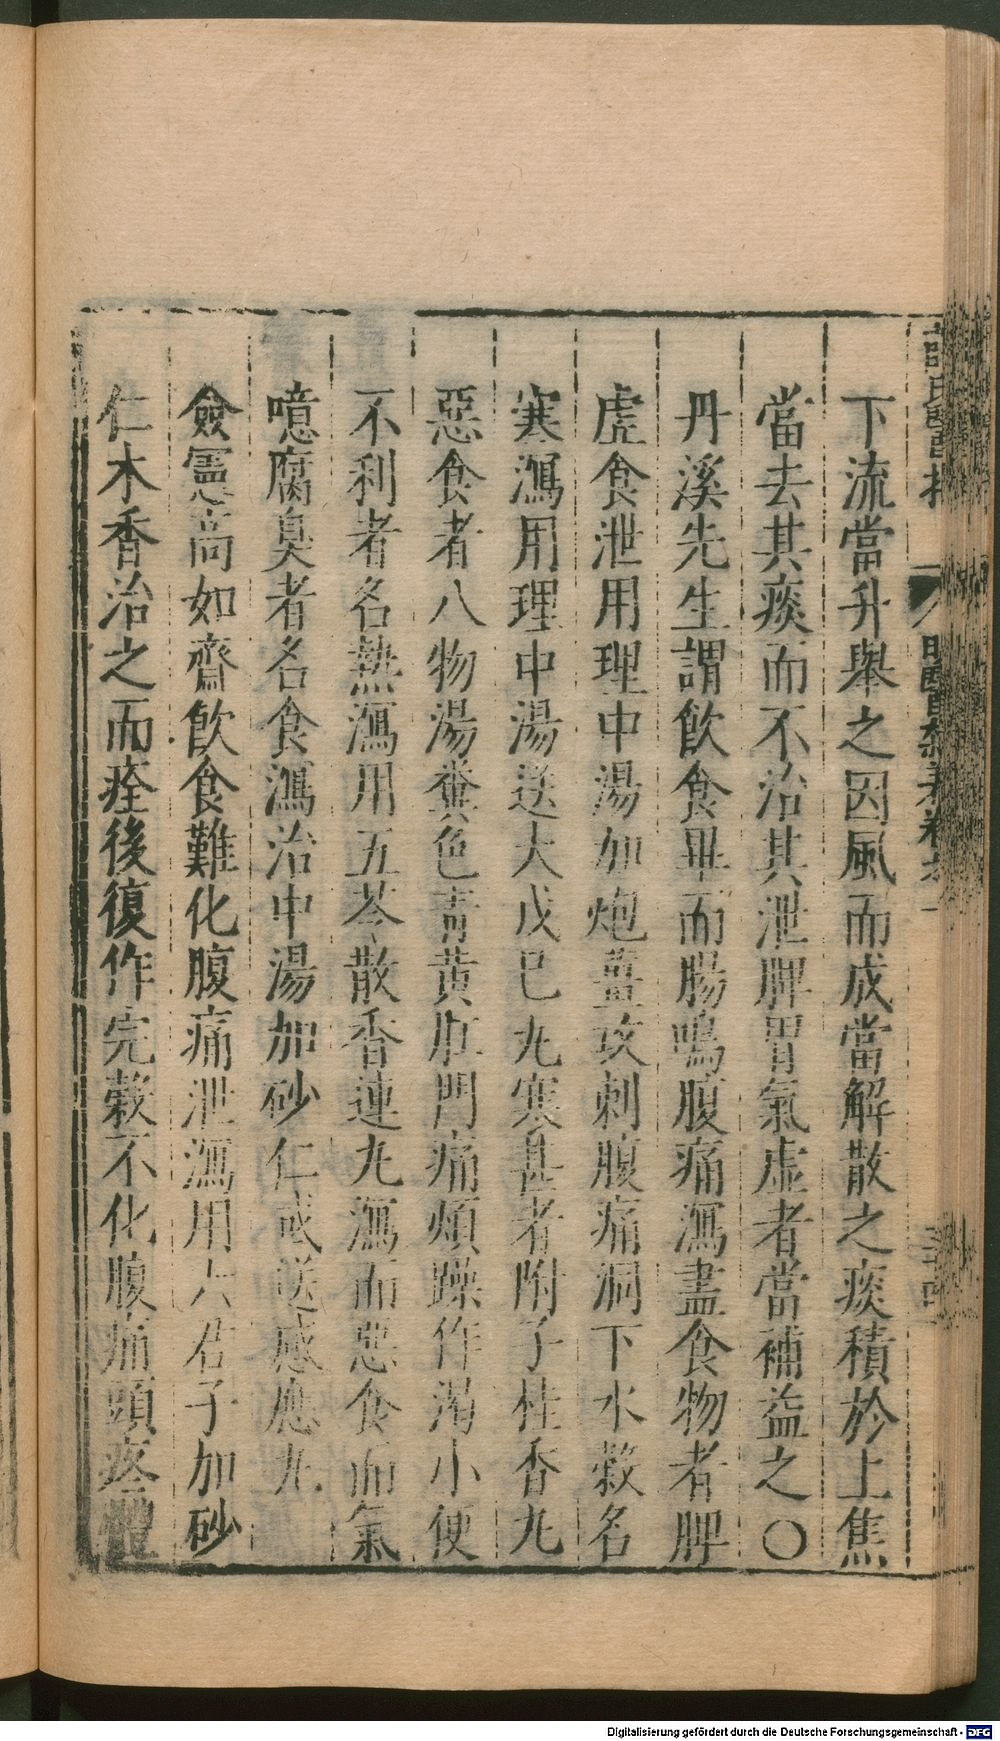 下流當升舉之因風而成當解散之痰積於上焦
當去其痰而不治其泄脾胃氣虛者當補益之〇
丹溪先生謂飲食畢而腸鳴腹痛瀉盡食物者脾
虛食泄用理中湯加炮薑攻刺腹痛洞下水穀名
寒瀉用理中湯送大戊已丸寒甚者附子桂香丸
惡食者八物湯糞色青黃肛門痛煩躁作渴小便
不利者名熱瀉用五苓散香連丸瀉而惡食而氣
噫腐臭者名食瀉治中湯加砂仁或送感應丸
僉憲高如齋飲食難化腹痛泄瀉用六君子加砂
仁木香治之而痊後復作完穀不化腹痛頭疼體
Digitalisierung gefördert durch die Deutsche Forschungsgemeinschaft - DFG